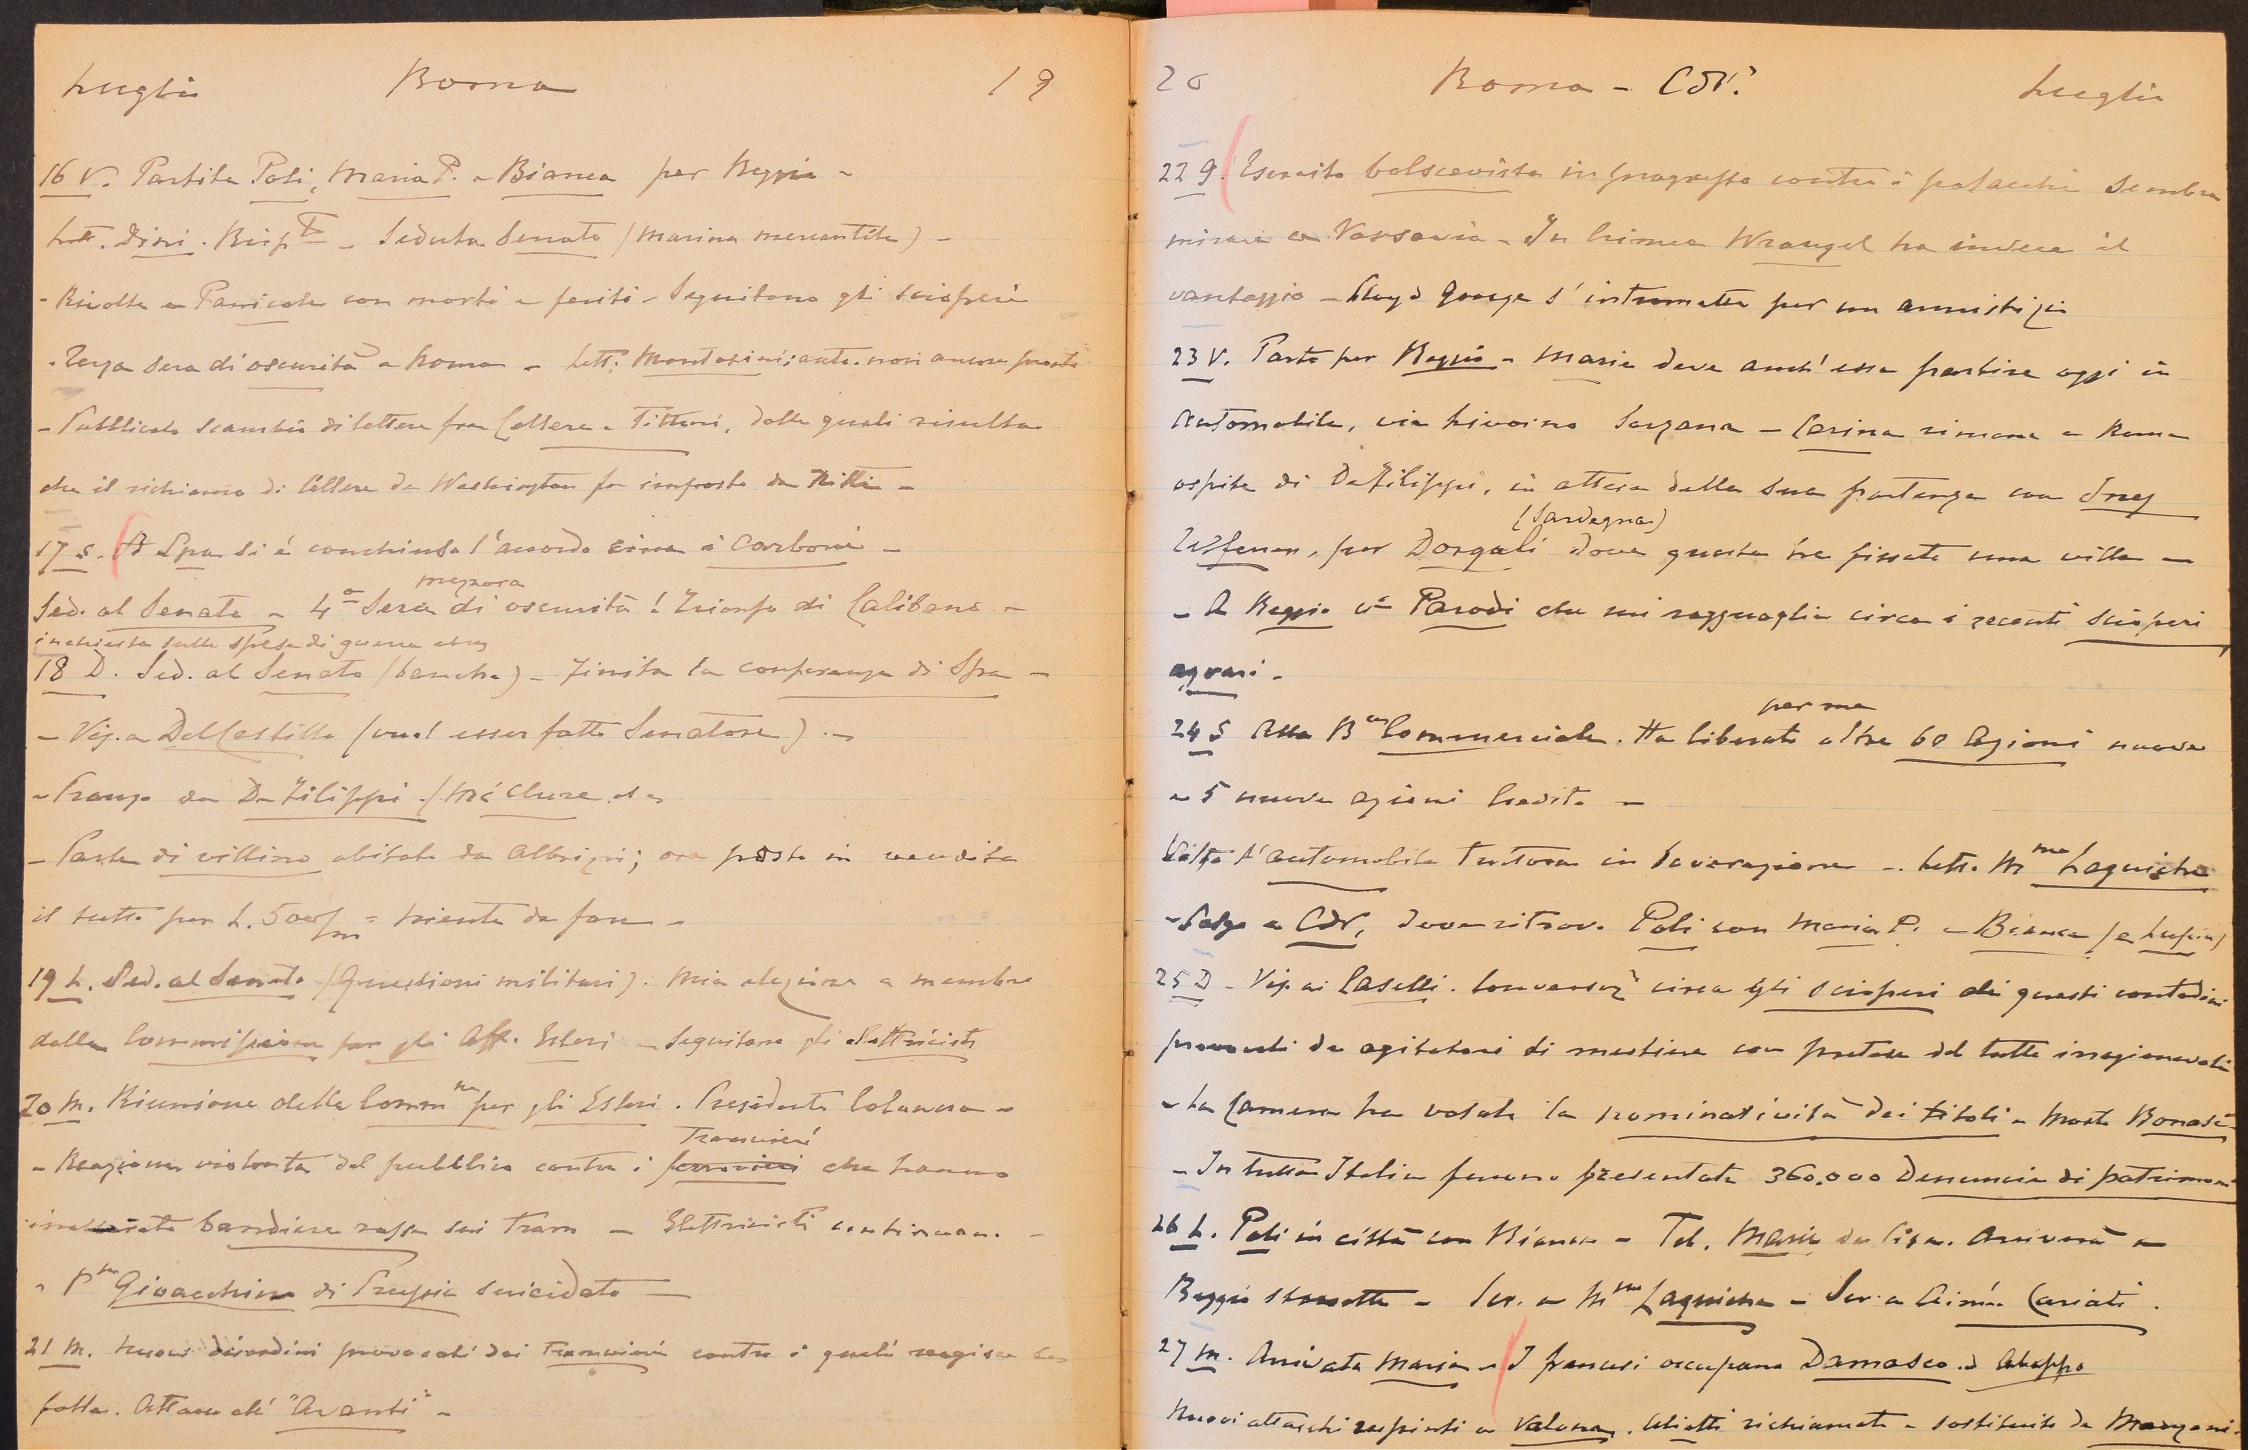 Luglio Roma 19
16 V. Partite Poli, Maria P. e Bianca per Reggio -
Lett. Disri. Risp. - Seduta Senato (Marina mercantile) -
- Rivolta a Panicale con morti e feriti - Seguitano gli scioperi
- Terza sera di oscurità a Roma - Lett: Montorsini: auto. non ancora pronta
- Pubblicato scambio di lettere fra Cellere e Tittoni, dalle quali risulta
che il richiamo di Cellere da Washington fu imposto da Nitti -
17 S. A Spa si è conchiuso l'accordo circa i carboni -
mezzora
Sed. al Senato - 4a Sera di oscurità! Trionfo di Calibano -
inchiesta sulle spese di guerra
18 D. Sed. al Senato (banche) - Finita la conferenza di Spa -
- Vis. a Del Castillo (vuol esser fatto Senatore) -
- Pranzo da De Filippi (McClure
- Parte di villino abitato da Albrizzi; ora posto in vendita
il tutto per L. 500/m = niente da fare -
19 L. Sed. al Senato (Questioni militari). Mia elezione a membro
della Commissione per gli Aff. Esteri - Seguitano gli elettricisti
20 M. Riunione della Comm ne per gli Esteri. Presidente Colonna -
Tramvieri
- Reazione violenta del pubblico contro i ferrovieri che hanno
bandiere rosse sui Tram - Elettricisti continuano -
- Pse Gioacchino di Prussia suicidato -
21 M. Nuovi disordini provocati dai Tramvieri contro i quali reagisce la
folla. Attacco all' "Avanti" -
20 Roma - CdV. Luglio
22 G. Esercito bolscevista in progresso contro i polacchi sembra
mirare a Varsavia - In Crimea Wrangel ha invece il
vantaggio - Lloyd George s'intromette per un armistizio
23 V. Parto per Reggio - Maria deve anch'essa partire oggi in
automobile, via Livorno Sarzana - Carina rimane a Roma
ospite di De Filippi, in attesa della sua partenza con
(Sardegna)
per Dorgali dove questa ha fissato una villa -
- A Reggio Parodi che mi ragguaglia circa i recenti scioperi
agrari -
per me
24 S Alla B ca Commerciale. Ha liberato altre 60 Azioni nuove
e 5 nuove azioni Credito -
Visto l'automobile tuttora in lavorazione - Lett. Mme Laguiche
- Salgo a CdV, dove ritrovo Poli con Maria P. e Bianca (e Lupin)
25 D - Vis. ai Caselli. Conversaz. circa gli scioperi di questi contadini
provocati da agitatori di mestiere con pretese del tutto irragionevoli
- La Camera ha votato la nominatività dei titoli - Morto Bonasi
- In tutta Italia furono presentate 360.000 Denuncie di patrimonio
26 L. Poli in città con Bianca - Tel. Maria da Pisa. Arriverà a
Reggio stanotte - Scr. a Mme Laguiche - Scr. a Aimée Cariati.
27 M. Arrivata Maria - I francesi occupano Damasco ed Aleppo
Nuovi attacchi respinti a Valona. Aliotti richiamato e sostituito da Manzoni -